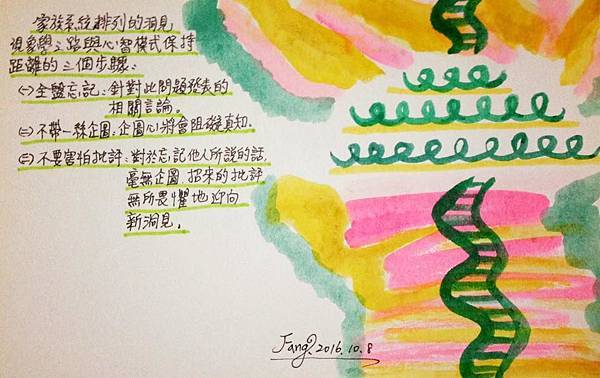 家族系統排列的洞見
現象學之路與心智模式保持
距離的三個步驟:
㈠全盤忘記:針對此問題發表的
相關言論。
㈡不帶一絲企圖:企圖心將會阻礙真知.
㈢不要害怕批評:對於忘記他人所說的話,
毫無企圖、招來的批評
無所畏懼地迎向
新洞見。
Fang. 2016.10.8